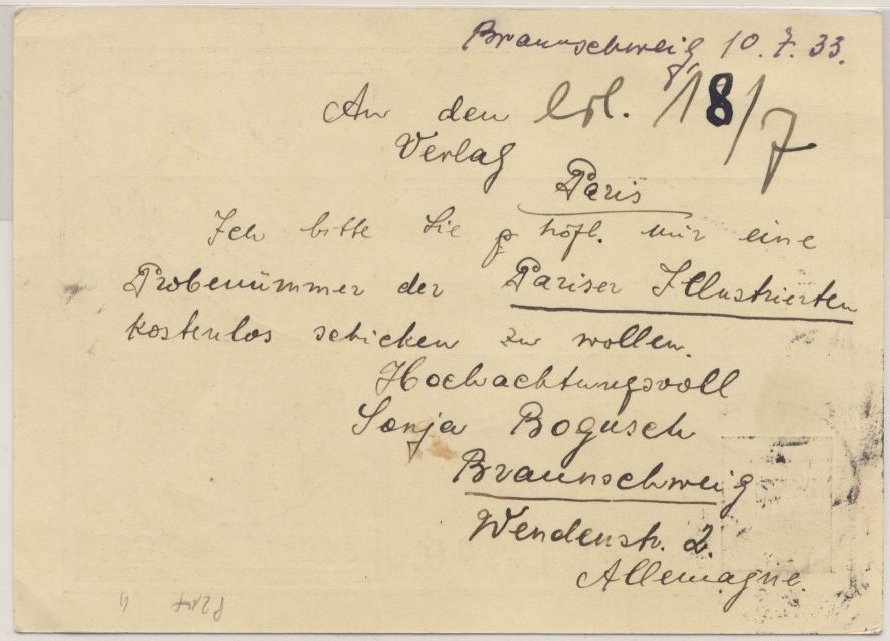 Braunschweig, 10.7.33.
An den erl. 18/7
Verlag
Paris
Ich bitte Sie höfl. mir eine
Probenummer der Pariser Illustrierten
kostenlos schicken zu wollen.
Hochachtungsvoll
Sonja Bogusch
Braunschweig
Wendenstr. 2.
Allemagne